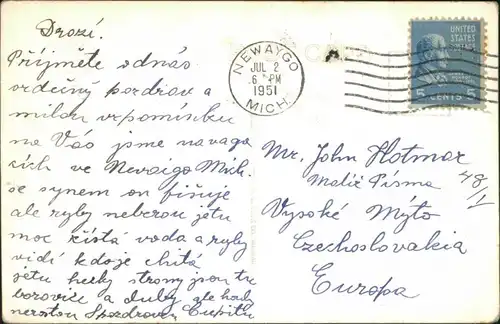 Drozí.
Příjměte od nás
vrdečný pozdrav a
milou vzpomínku
na Vás jsme na vaga
cích ve Nevaigo Mich.
se synem on fišuje
ale ryby neberou jetu
moc čistá voda a ryby
vidí kdo je chitá
jetu hezky stromy jsou tu
borovice a duby ale hady
nerostou S pozdravem
NEWAYGO
JUL 2
6 PM
1951
MICH.
UNITED
STATES
5 CENTS 5
Mr. John Hotmar
Malíř Písma 48/I
Vysoké Mýto
Czechoslovakia
Europa